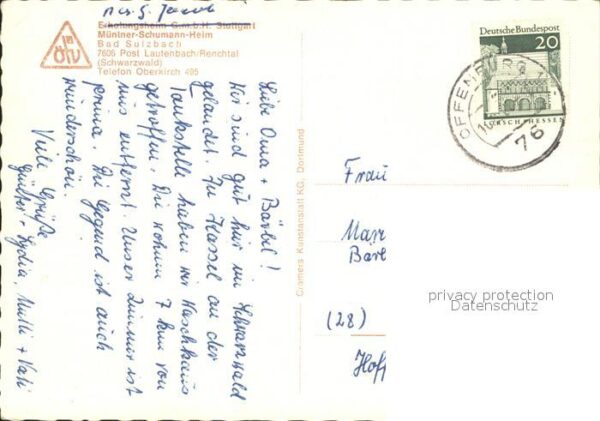 Erholungsheim G.m.b.H. Stuttgart
Müntner-Schumann-Heim
Bad Sulzbach
7605 Post Lautenbach/Renchtal
(Schwarzwald)
Telefon Oberkirch 495
Liebe Oma + Bärbel!
Wir sind gut hier im Schwarzwald
gelandet. In Kassel an der
Tankstelle haben wir Haschkaus
getroffen. Die wohnen 7 km von
uns entfernt. Unser Zimmer ist
prima. Die Gegend ist auch
wunderschön.
Viele Grüße
Günther + Lydia, Mutti + Vati
Cramers Kunstanstalt KG, Dortmund
Deutsche Bundespost
20
LORSCH-HESSEN
OFFENBURG
76
Frau
Mar
Barb
(28)
Hoff
privacy protection
Datenschutz